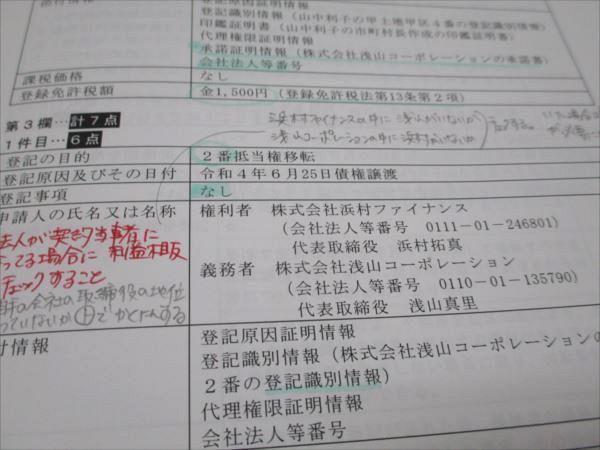 添付情報
登記原因証明情報
登記識別情報（山中利子の甲土地甲区4番の登記識別情報）
印鑑証明書（山中利子の市町村長作成の印鑑証明書）
代理権限証明情報
承諾証明情報（株式会社浅山コーポレーションの承諾書）
会社法人等番号
課税価格 なし
登録免許税額 金1,500円（登録免許税法第13条第2項）
第3欄…計7点
浜村ファイナンスの中に 浅山がいないか
浅山コーポレーションの中に 浜村がいないか
チェックする。
1件目…6点
登記の目的 2番抵当権移転
登記原因及びその日付 令和4年6月25日債権譲渡
登記事項 なし
申請人の氏名又は名称 権利者 株式会社浜村ファイナンス
（会社法人等番号 0111-01-246801）
代表取締役 浜村拓真
義務者 株式会社浅山コーポレーション
（会社法人等番号 0110-01-135790）
代表取締役 浅山真里
法人が契約当事者に
ってる場合に 利益相反
チェックすること
の会社の取締役の地位
っていないか でかくにんする
付情報 登記原因証明情報
登記識別情報（株式会社浅山コーポレーションの
2番の登記識別情報）
代理権限証明情報
会社法人等番号